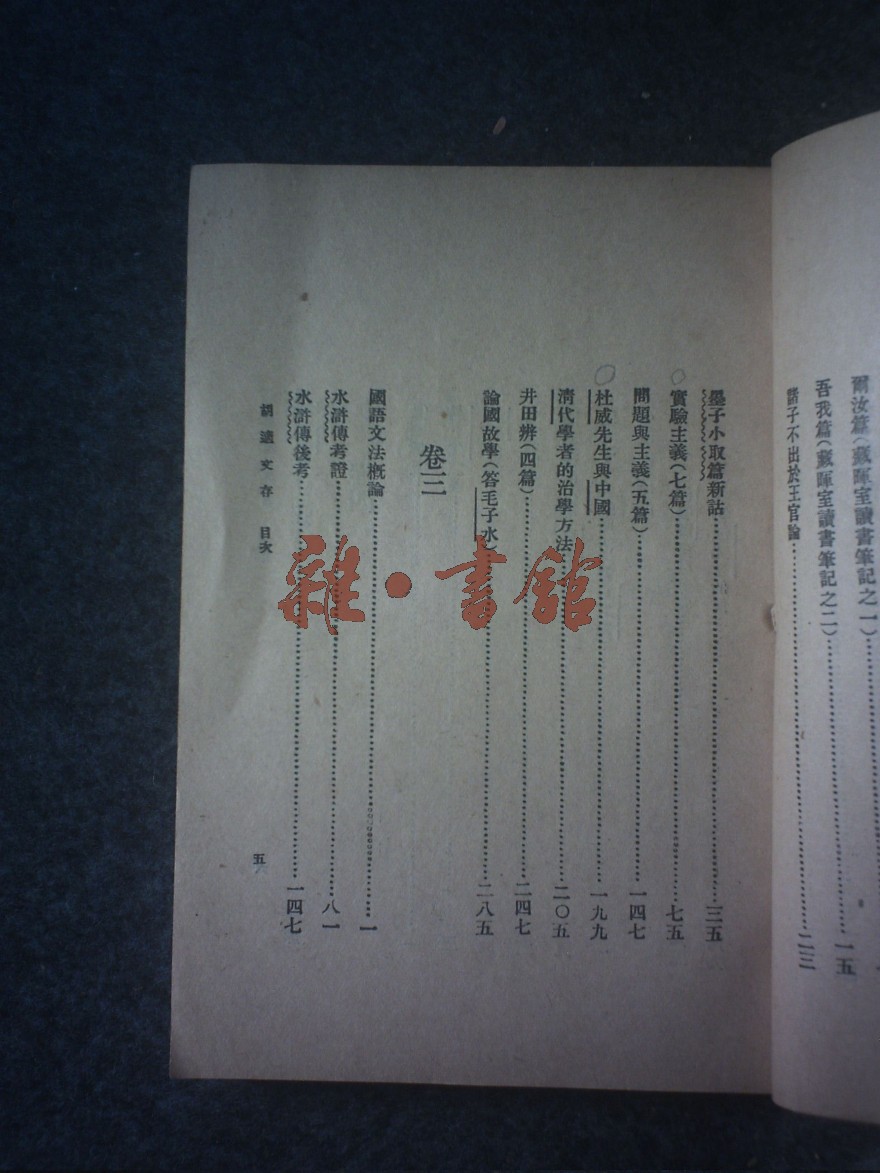 爾汝篇(藏暉室讀書筆記之一)
吾我篇(藏暉室讀書筆記之二)……一五
諸子不出於王官論……二三
墨子小取篇新詁……三五
實驗主義(七篇)……七五
問題與主義(五篇)……一四七
杜威先生與中國……一九九
清代學者的治學方法……二〇五
井田辨(四篇)……二四七
論國故學(答毛子水)……二八五
卷三
國語文法概論……一
水滸傳考證……八一
水滸傳後考……一四七
胡適文存 目次
五
雜·書館